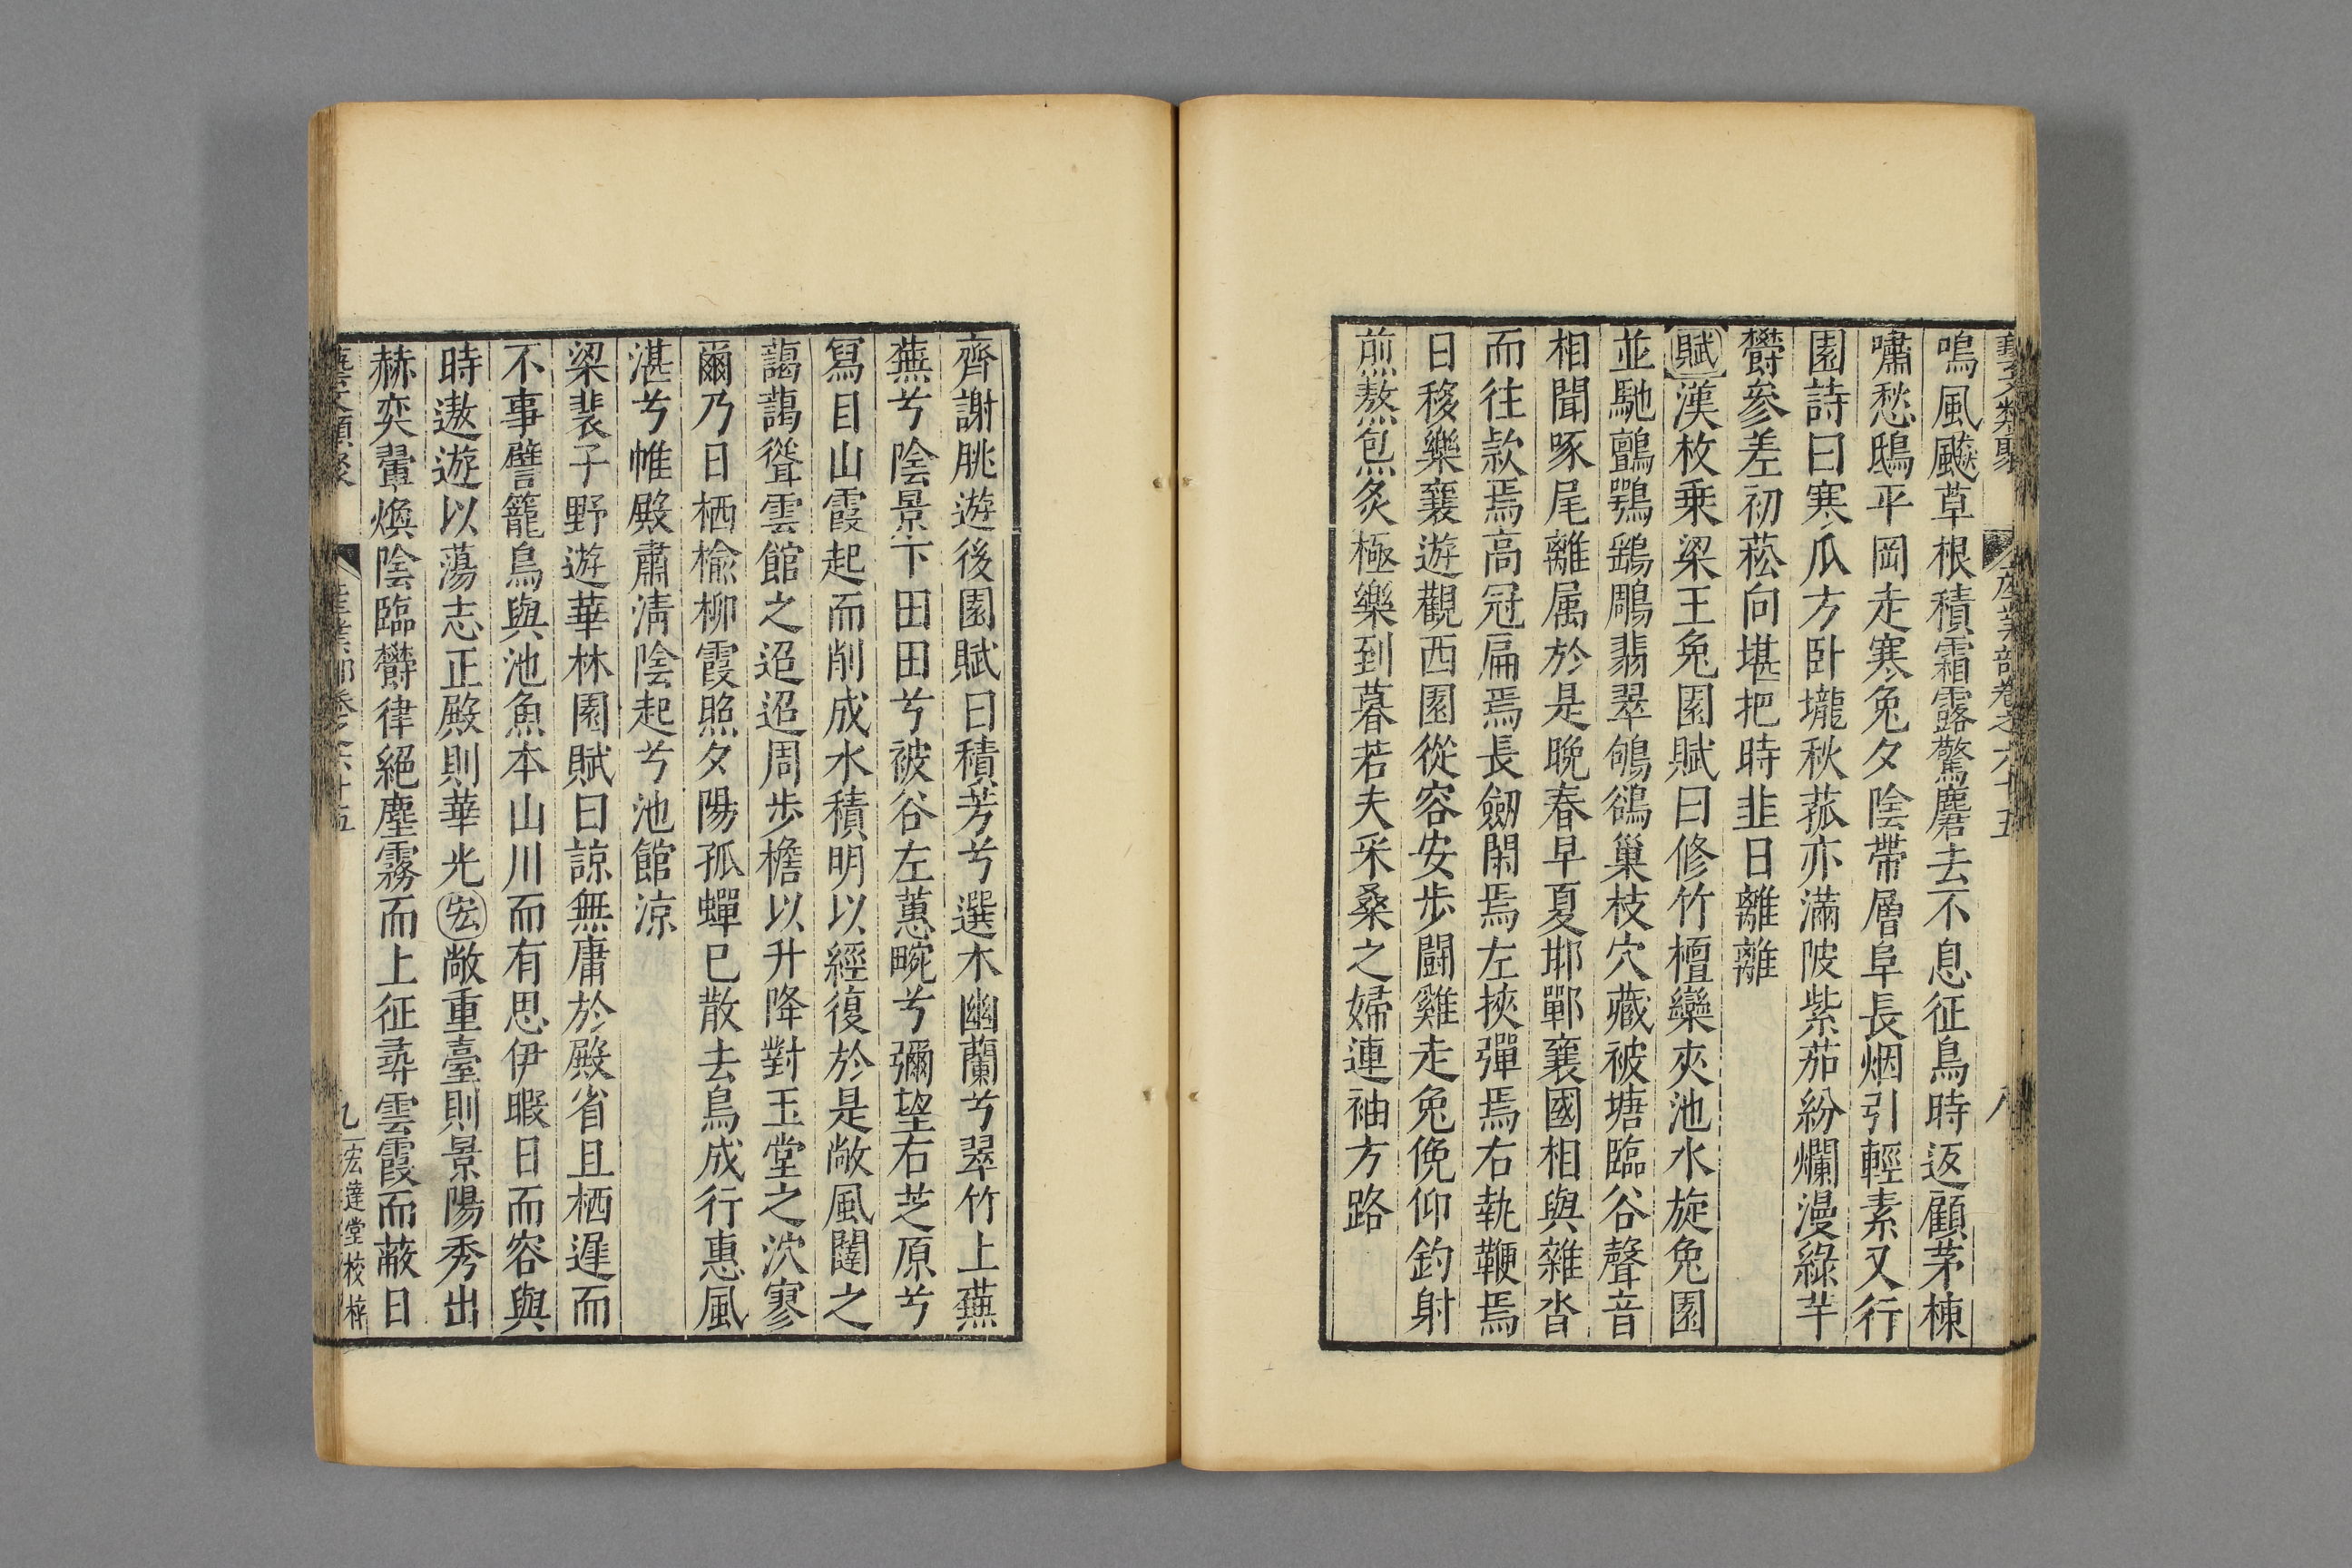 藝文類聚 産業部卷之六十五 八
鳴風飈草根積霜露驚麏去不息征鳥時返顧茅棟
嘯愁鴟平岡走寒兔夕陰帶層阜長烟引輕素又行
園詩曰寒瓜方卧壠秋菰亦滿陂紫茄紛爛漫綠芋
欝參差初菘向堪把時韭日離離
賦漢枚乗梁王兔園賦曰修竹檀欒夾池水旋兔園
並馳鸇鶚鷂鵰翡翠鴝鵒巢枝穴藏被塘臨谷聲音
相聞啄尾離属於是晚春早夏邯鄲襄國相與雜沓
而往款焉高冠扁焉長劒閑焉左挾彈焉右執鞭焉
日移樂襄遊觀西園從容安步鬬雞走兔俛仰釣射
煎熬炰炙極樂到暮若夫采桑之婦連袖方路
齊謝朓遊後園賦曰積芳兮選木幽蘭兮翠竹上蕪
蕪兮陰景下田田兮被谷左蕙畹兮彌望右芝原兮
冩目山霞起而削成水積明以經復於是敞風闥之
藹藹聳雲館之迢迢周步檐以升降對玉堂之泬寥
爾乃日栖榆柳霞照夕陽孤蟬已散去鳥成行惠風
湛兮帷殿肅清陰起兮池館涼
梁裴子野遊華林園賦曰諒無庸於殿省且栖遲而
不事譬籠鳥與池魚本山川而有思伊暇日而容與
時遨遊以蕩志正殿則華光宏敞重臺則景陽秀出
赫奕翬煥陰臨欝律絕塵霧而上征尋雲霞而蔽日
藝文類聚 産業部卷之六十五 九 宏達堂校梓